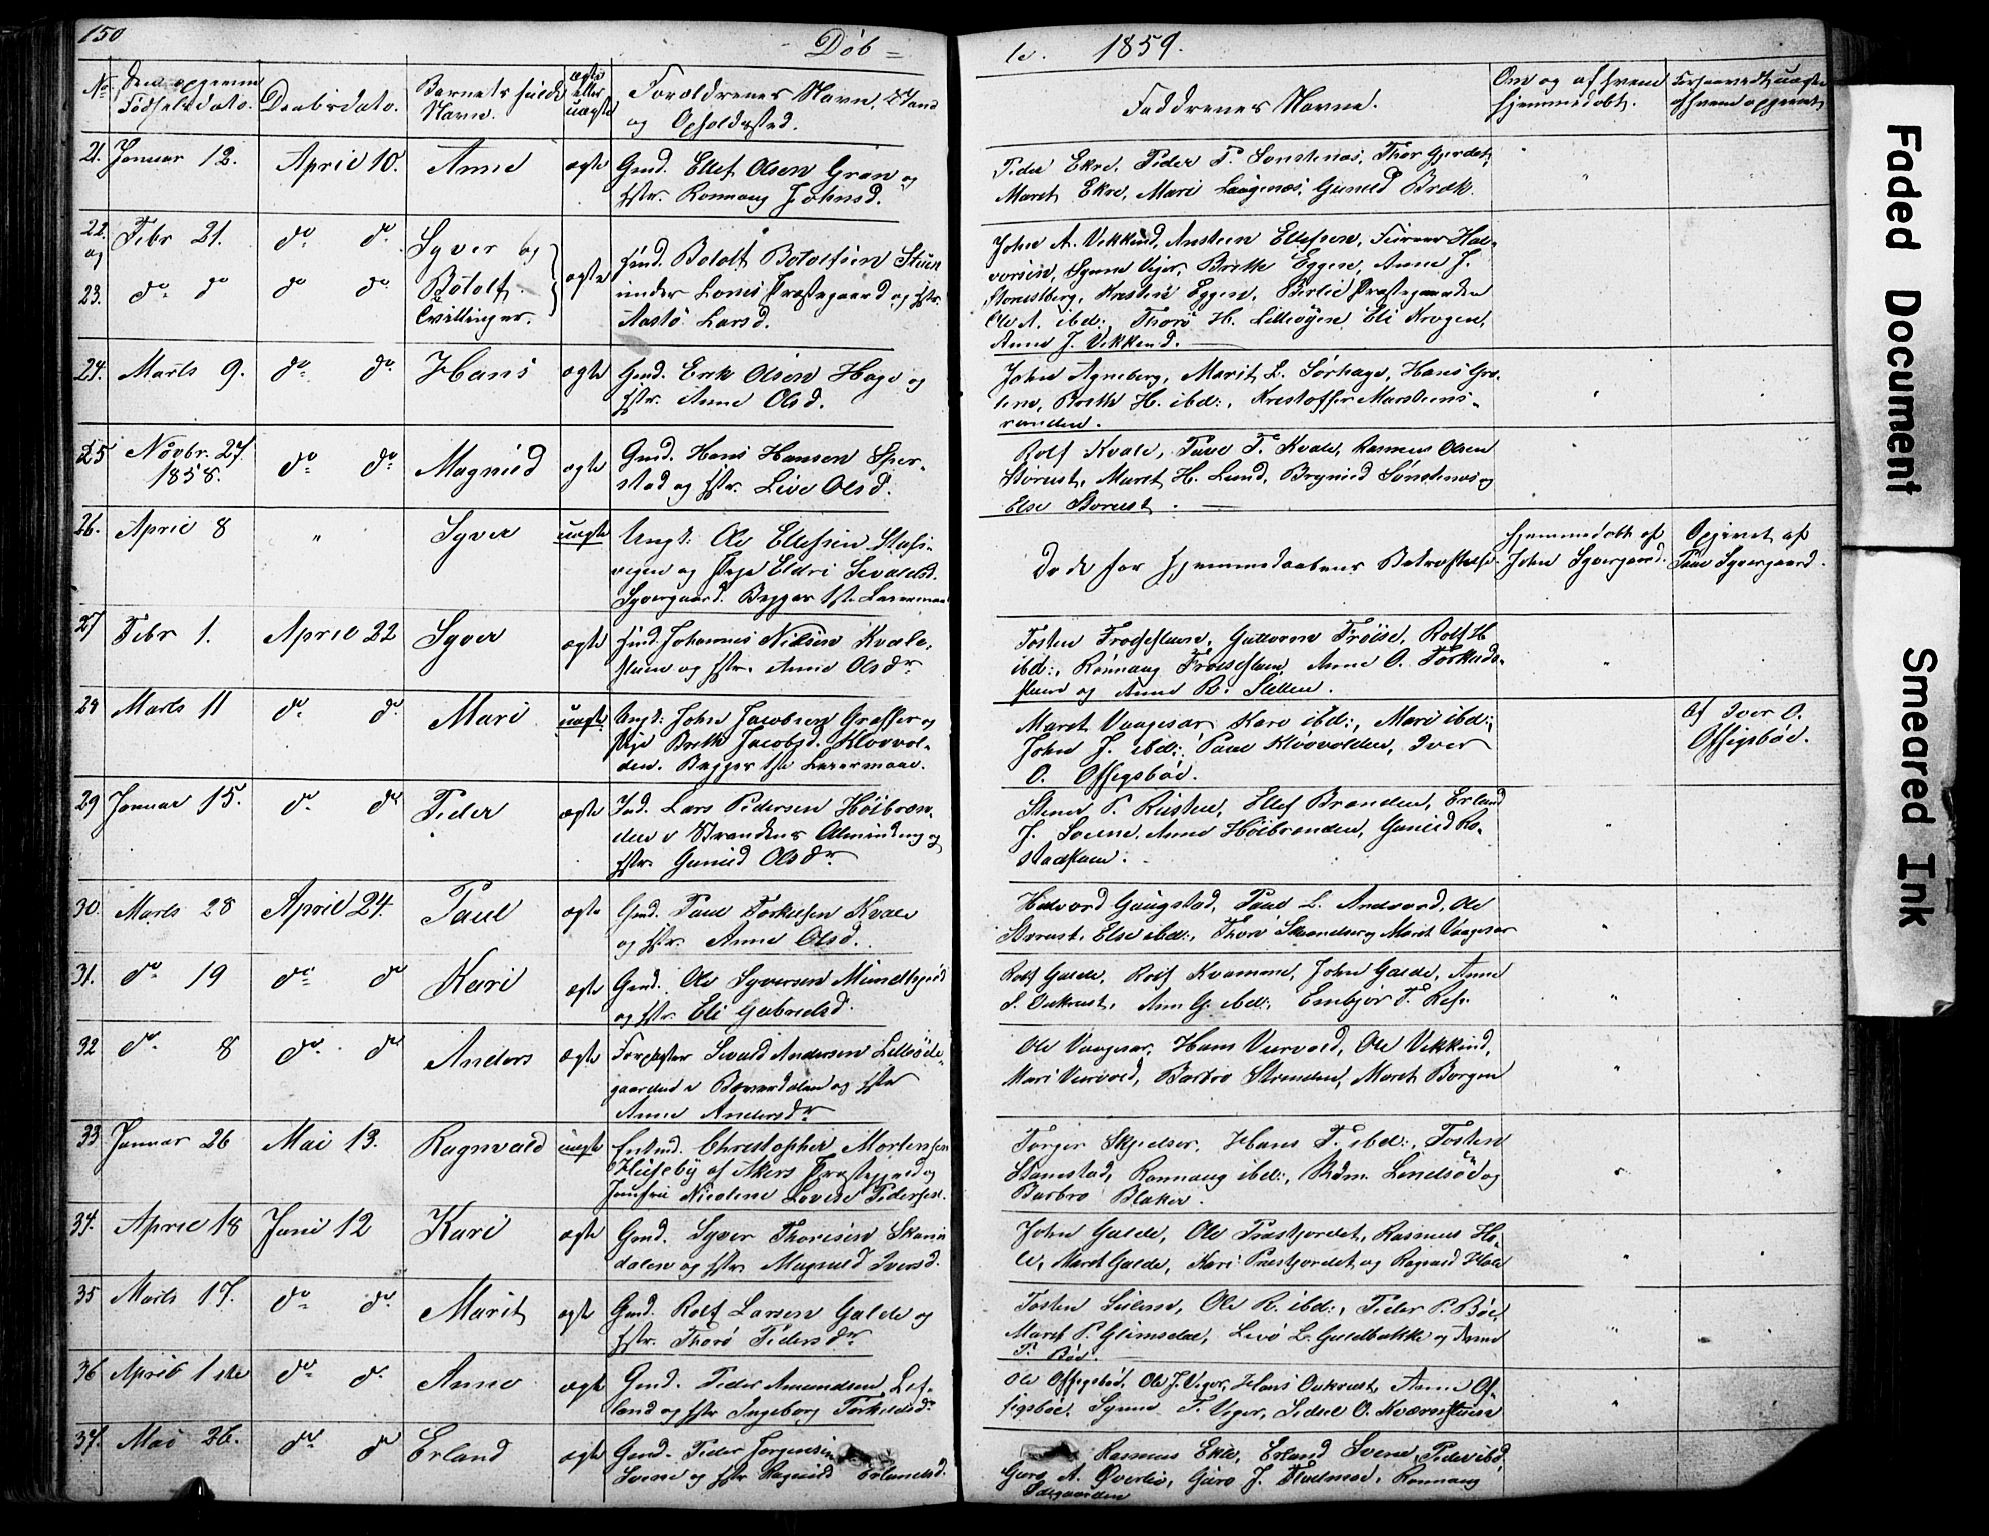 150
Døb=
te. 1859.
No.
Den opgivne Fødselsdato.
Daabsdato.
Barnets fulde Navn.
ægte eller uægte
Forældrenes Navn, Stand og Opholdssted.
Faddrenes Navne.
Om og af hvem hjemmedøbt.
21. Januar 12. April 10. Anne ægte Gmd. Ellef Olsen Gran og
Hstr. Rønnaug Johnsd.
Peder Ekre, Peder P. Sønstenæs, Thor Gjerdet,
Maret Ekre, Mari Laugenæs, Gunild Bræk.
22. og 23. Febr 21. do do Syver og ægte
do do do do Botolf Tvillinger.
Hmd. Botolf Botolfsen Stuen
under Loms Præstegaard og Hstr.
Aaste Larsd.
John A. Vekkend, Ansteen Ellefsen, Hal-
vorsen, Synne Veger, Brette Eggen, Anne J.
Storustberg, Kristen Eggen, Præstegaarden
Ole A. ibd:, Thore H. Lilleøyen Eli Krogen,
Anne J. Vekkend.
24. Marts 9. do do Hans ægte Gmd. Erik Olsen Hage og
Hstr. Anne Olsd.
John Agneberg, Marit L. Sørhage, Hans
Breth H. ibd:, Kristoffer
25 Novbr. 27. 1858. do do Magnild ægte Gmd. Hans Hansen Sper-
stad og Hstr. Live Olsd.
Rolf Kvale, Paul T. Kvale, Rasmus Olsen
Storust, Maret H. Lund, Brynild Sønstenæs og
Else Storust.
26. April 8 " Syver uægte Ungk: Ole Ellefsen
og Pige Eldri Sevaldsd.
Sygaard. Begges 1ste Leiermaal
Døde før Hjemmedaabens Bekræftelse.
Hjemmedøbt af
John Sygaard.
Opgivet af
Paul Sygaard.
27 Febr 1. April 22 Syver ægte Hmd. Johannes Nilsen Kvale-
stuen og Hstr. Anne Olsdr
Tosten Frøisestuen, Guttorm Frøise, Rolf H.
ibd:, Rønnaug Frøisestuen, Anne O.
og Anne R. Sletten.
28 Marts 11 do do Mari uægte Ungk: John Jacobsen Graffer og
Pige Breth Jacobsd. Kløvvol-
den. Begges 1ste Leiermaal.
Maret Vaagesar, Kari ibd:, Mari ibd:,
John J. ibd:, Paul Kløvvolden, Iver
O. Offigsbøe.
Af Iver O.
Offigsbøe.
29 Januar 15. do do Peder ægte Ind. Lars Pedersen Høibran-
den i Strandens Alminding og
Hstr. Gunild Olsdr
Stener P. Rusten, Ellef Branden, Erland
J. Soene, Anne Høibranden, Gunild Ro-
30. Marts 28 April 24. Paul ægte Gmd. Paul Torkelsen Kvale
og Hstr. Anne Olsd.
Halvord Gaugstad, Paul L. Andvord, Ole
Storust, Else ibd:, Thore og Maret Vaagesar
31. do 19 do do Kari ægte Gmd. Ole Syversen Mundhjeld
og Hstr. Eli Gabrielsd.
Rolf Galde, Rolf Kvamme, John Galde, Anne
S. Aukrust, Ann G. ibd:, Embjør T.
32 do 8 do do Anders ægte Forpagter Sevald Andersen Lillesøde-
gaarden i Bøverdalen og Hstr
Anne Andersdr
Ole Vaagesar, Hans Vervold, Ole Vekkend,
Mari Vervold, Barbro Stranden, Maret Borgen
33 Januar 26 Mai 13. Ragnvald uægte Enkmd. Christopher Mortensen
Huseby af Akers Præstegjeld og
Jomfru Nicoline Lovise Pedersen.
Torger Skjelser, Hans T. ibd:, Tosten
Stamstad, Rønnaug ibd:, og
Barbro Blaker.
34. April 18 Juni 12 Kari ægte Gmd. Syver Thoresen
dalen og Hstr. Magnild Iversd.
John Galde, Ole Præstjordet, Rasmus Ho-
le, Maret Galde, Kari Præstjordet og Ragnild Hole
35 Marts 17. do do Marit ægte Gmd. Rolf Larsen Galde og
Hstr. Thore Pedersdr
Tosten Sulem, Ole R. ibd:, Peder P. Bøe,
Maret P. Glimsdal, Live L. Galdbakke og Anne
P. Bøe.
36 April 1ste do do Anne ægte Gmd. Peder Amundsen Lef-
land og Hstr Ingeborg Torkildsdr
Ole Offigsbøe, Ole J. Veger, Hans Aukrust, Anne Of-
figsbøe, Synne T. Veger, Sidsel O. Kværnstuen
37. Mai 26. do do Erland ægte Gmd. Peder Jørgensen
Soene og Hstr Ragnild Erlandsd.
Rasmus Ekle, Erland Soene, Peder ibd,
Guro A. Øverlie, Guro J. Rønnaug
Ødegaarden
Faded Document
Smeared Ink